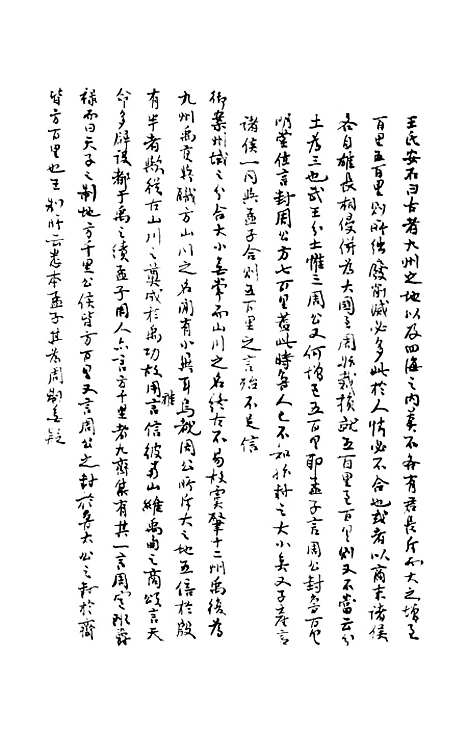 王氏安石曰古者九州之地以及四海之內莫不各有君長斥而大之增至
百里五百里則所絀廢削滅必多此於人情必不合也或者以商末諸侯
各自雄長相侵併為大國至周時裁損就五百里至百里則又不當云分
土為三也武王分土惟三周公又何增至五百里耶孟子言周公封魯百里
明堂位言封周公方七百里蓋此時魯人已不知始封之大小矣又子產言
諸侯一同與孟子合則五百里之言殆不足信
御案州域之分合大小無常而山川之名終古不易故虞肇十二州禹復為
九州禹貢與職方山川之名間有小異耳烏覩周公所斥大之地五倍於殷
有半者歟從古山川之奠成於禹功故周雅言信彼南山維禹甸之商頌言天
命多辟設都于禹之績孟子周人亦言方千里者九齊集有其一言周室班爵
祿而曰天子之制地方千里公侯皆方百里又言周公之封於魯大公之封於齊
皆方百里也王制所云悉本孟子其為周制無疑